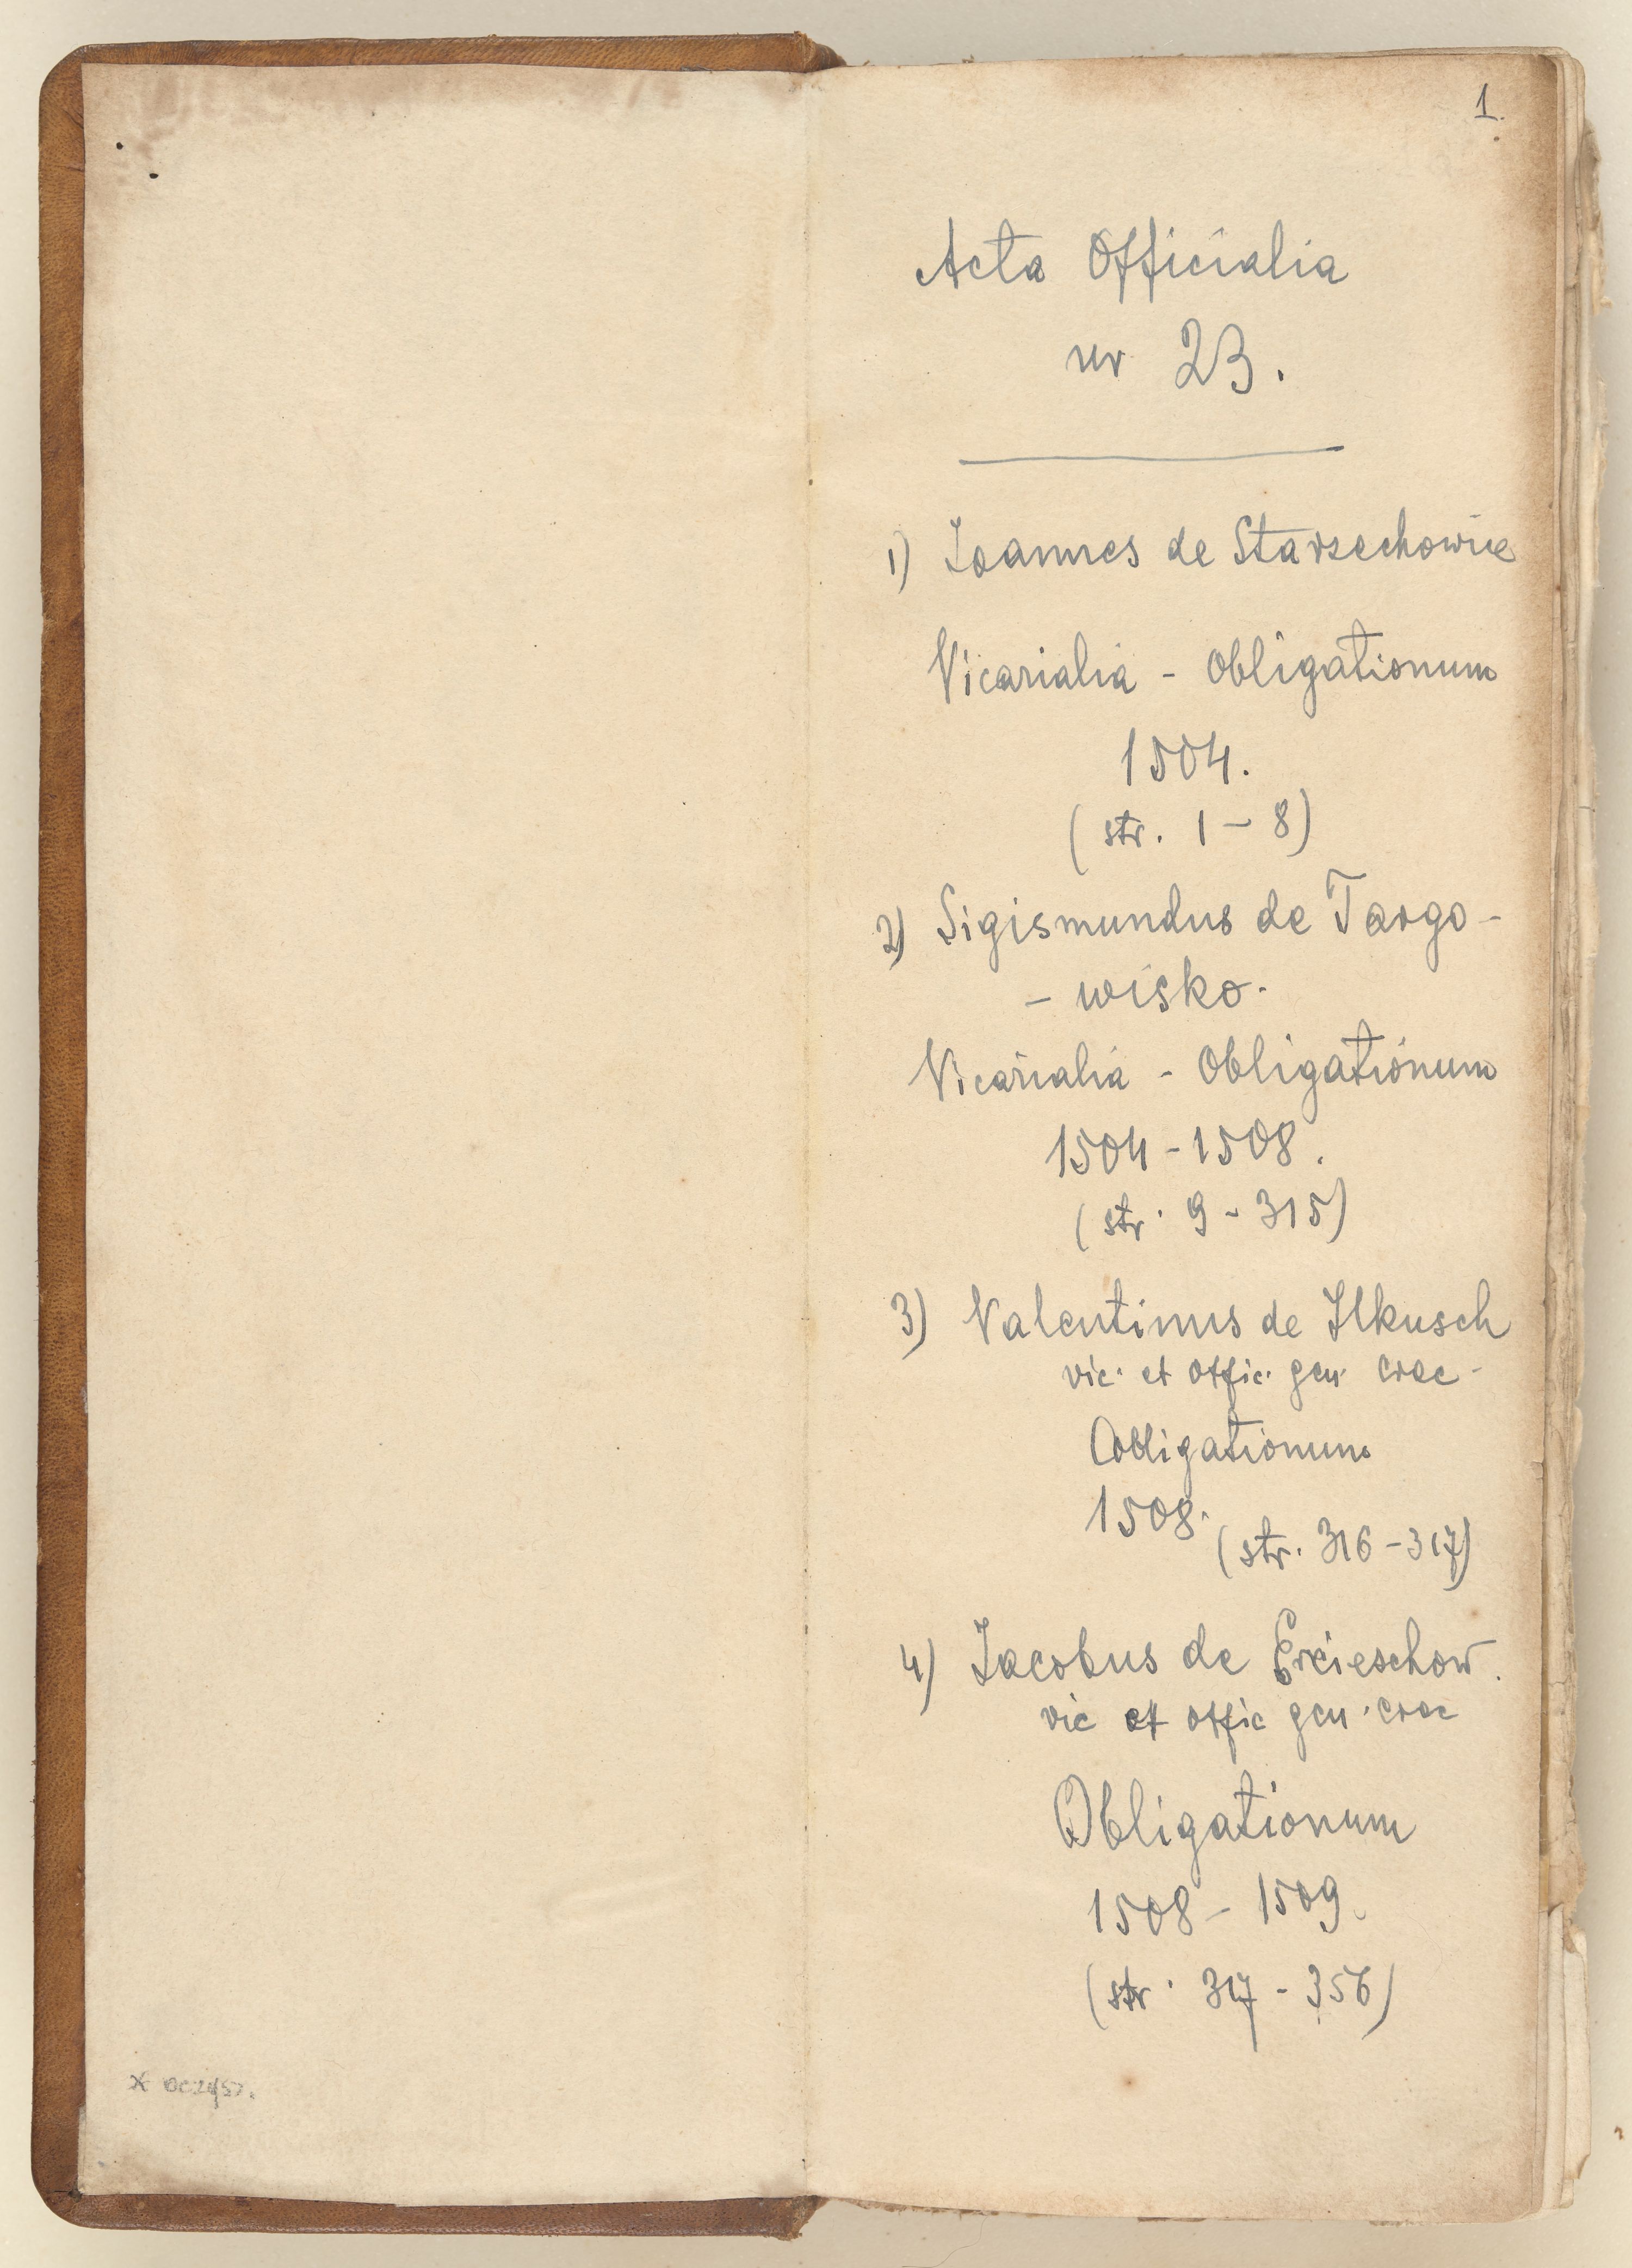 1.
Acta Officialia
nr 23.
1) Ioannes de Starzechowice
Vicarialia - Obligationum
1504.
(str. 1 - 8)
2) Sigismundus de Targo-
- wisko.
Vicarialia - Obligationum
1504 - 1508.
(str. 9 - 315)
3) Valentinus de Ilkusch
vic. et offic. gen. crac.
Obligationum
1508.
(str. 316 - 317)
4) Iacobus de
vic et offic gen. crac
Obligationum
1508 - 1509.
(str. 317 - 356)